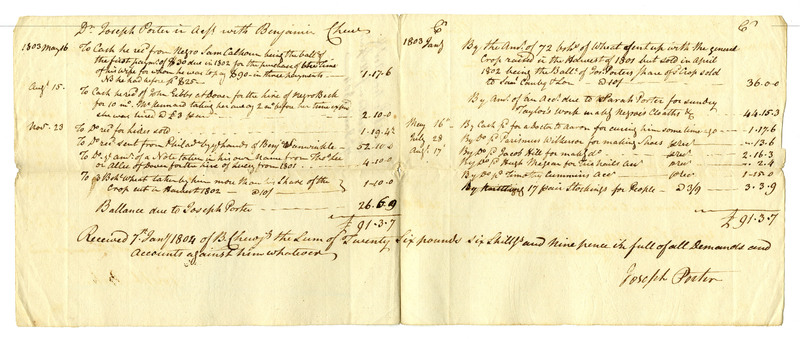 Dr. Joseph Porter in Acct with Benjamin Chew
1803 May 16 To Cash he recd from Negro Sam Calhoun being the balle. of
the first paymt. of $30 due in 1802 for the purchase of the time
of his wife for whom he was to pay $90 - in three payments -
NB he had before pd. $25 - 1-17-6
Augt. 15. To Cash he recd of John Gibbs at Dover for the hire of Negro Beck
for 10 mo. Mr. taking her away 2 mo. before her time upon
she was hired @ £3 2-10-0
Novr. 23 To Do. recd for hides sold 1-19-4
To Do. recd sent from Philada by hands of Benj. Vanwinkle - 52-10-0
To Do. amt. of a Note taken in his own Name from Thos.
of Dover for the hire of from 1801 4-10-0
To 3 Bohs. Wheat taken by him more than his Share of the
Crop cut in Harvest 1802 @ 10/ 1-10-0
Ballance due to Joseph Porter 26.6.9
£ 91.3.7
Cr
1803 Jany By the Amt. of 72 bohs. of Wheat sent up with the general
Crop raised in the Harvest of 1801 but sold in april
1802 being the Balle. of Jos. Porters Share of Crop sold
to Saml. Canby @ 10/ 36.0.0
By Amt. of an Acct. due to Sarah Porter for sundry
Taylors work makg Negroes Cloaths &c 44.15.3
May 16th By Cash pd. for a Doctr. Aaron for curing him some time ago - 1-17.6
July 28 By Do. pd. Wilkerson for making Shoes & recd - 13.6
Augt. 17 By Do. pd. Jacob Hill for makg do. recd - 2.16.3
By Do. pd. Hugh for his Acct recd - 2.4
By Do. pd. Timothy Cummins Acct recd 1-15.0
By 17 pair Stockings for People - @ 3/9 - 3.3.9
£ 91.3.7
Received 7th Jany 1804 of B. Chew Jr. the Sum of Twenty Six pounds six shillgs. and nine pence in full of all Demands and
Accounts against him whatever
Joseph Porter